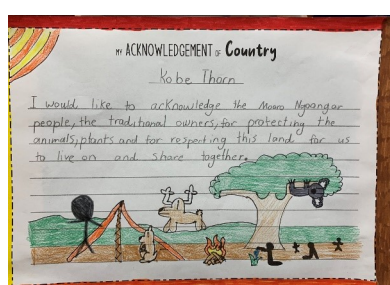 MY ACKNOWLEDGEMENT OF Country
Kobe Thorn
I would like to acknowledge the Mooro Nyoongar
people, the traditional owners, for protecting the
animals, plants and for respecting this land for us
to live on and share together.